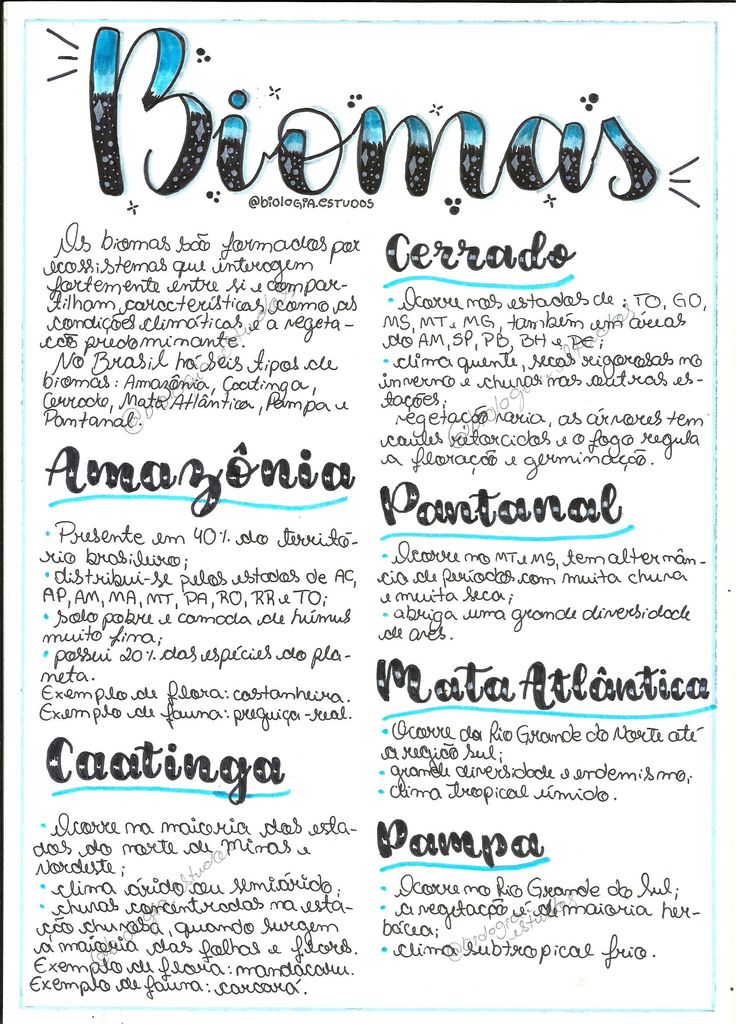 Biomas
@biologia.estudos
Os biomas são formados por
ecossistemas que interagem
fortemente entre si e compar-
tilham características como as
condições climáticas e a vegeta-
ção predominante.
No Brasil há seis tipos de
biomas: Amazônia, Caatinga,
Cerrado, Mata Atlântica, Pampa e
Pantanal.
Amazônia
• Presente em 40% do territó-
rio brasileiro;
• distribui-se pelos estados de AC,
AP, AM, MA, MT, PA, RO, RR e TO;
• solo pobre e camada de húmus
muito fina;
• possui 20% das espécies do pla-
neta.
Exemplo de flora: castanheira.
Exemplo de fauna: preguiça-real.
Caatinga
• Ocorre na maioria dos esta-
dos do norte de Minas e
Nordeste;
• clima árido ou semiárido;
• chuvas concentradas na esta-
ção chuvosa, quando surgem
a maioria das folhas e flores.
Exemplo de flora: mandacaru.
Exemplo de fauna: carcará.
Cerrado
• Ocorre nos estados de: TO, GO,
MS, MT e MG, também em áreas
do AM, SP, PB, BH e PE;
• clima quente, secas rigorosas no
inverno e chuvas nas outras es-
tações;
vegetação varia, as árvores tem
caules retorcidos e o fogo regula
a floração e germinação.
Pantanal
• Ocorre no MT e MS, tem alternân-
cia de períodos com muita chuva
e muita seca;
• abriga uma grande diversidade
de aves.
Mata Atlântica
• Ocorre do Rio Grande do Norte até
a região sul;
• grande diversidade e endemismo;
• clima tropical úmido.
Pampa
• Ocorre no Rio Grande do Sul;
• a vegetação é de maioria her-
bácea;
• clima subtropical frio.
@biologia.estudos
@biologia.estudos
@biologia.estudos
@biologia.estudos